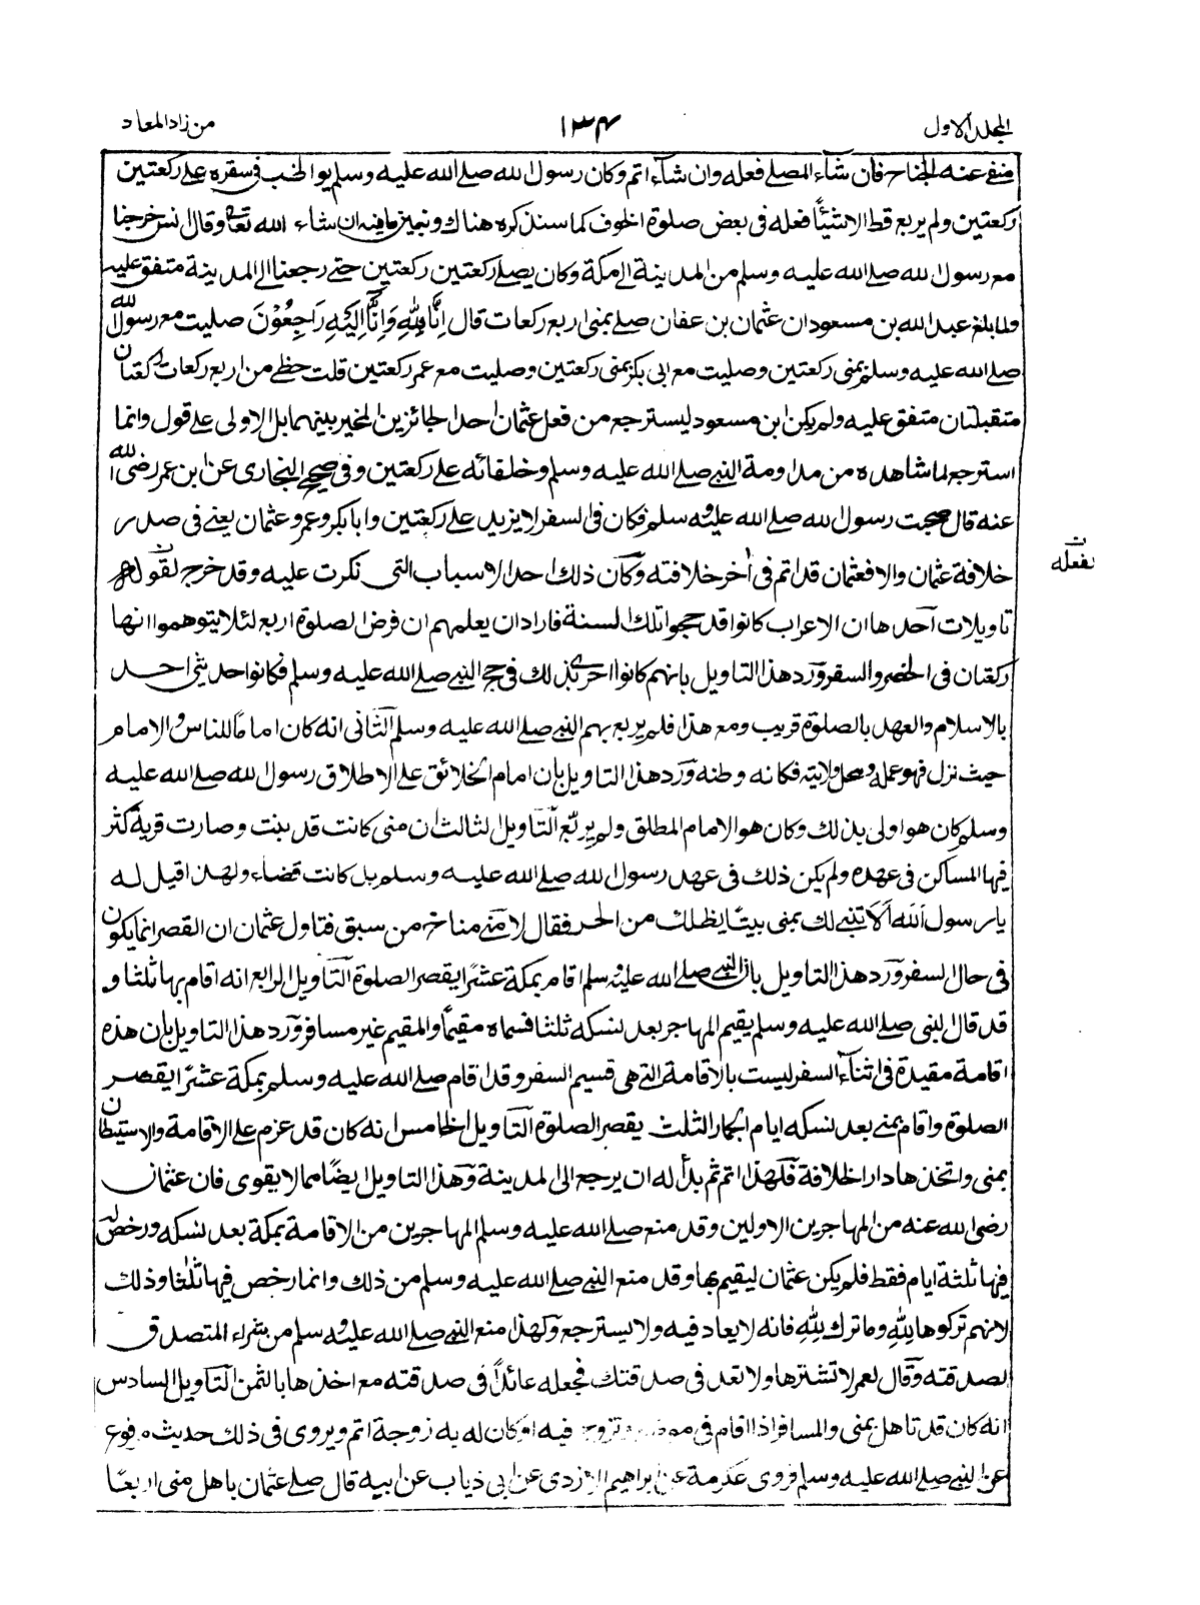 المجلد الاول ١٣٤ من زاد المعاد
منفے عنه الجناح فان شاء المصلے فعله وان شاء اتم وكان رسول الله صلے الله عليه وسلم يواظب فى سفره علے ركعتين
ركعتين ولم يربع قط الا شيئًا فعله فى بعض صلوة الخوف كما سنذكره هناك ونبين ما فيه ان شاء الله تعالى وقال انس خرجنا
مع رسول الله صلے الله عليه وسلم من المدينة الى مكة وكان يصلے ركعتين ركعتين حتے رجعنا الى المدينة متفق عليه
ولما بلغ عبد الله بن مسعود ان عثمان بن عفان صلے بمنى اربع ركعات قال اِنَّا لِلّٰهِ وَاِنَّا اِلَيْهِ رَاجِعُوْنَ صليت مع رسول الله
صلے الله عليه وسلم بمنى ركعتين وصليت مع ابى بكر بمنى ركعتين وصليت مع عمر ركعتين فليت حظے من اربع ركعات ركعتان
متقبلتان متفق عليه ولم يكن ابن مسعود ليسترجع من فعل عثمان احد الجائزين المخير بينهما بل الاولى على قول وانما
استرجع لما شاهده من مداومة النبے صلے الله عليه وسلم وخلفائه على ركعتين وفى صحيح البخارى عن ابن عمر رضى الله
عنه قال صحبت رسول الله صلے الله عليه وسلم فكان فى السفر لا يزيد على ركعتين وابا بكر وعمر وعثمان يعنے فى صدر
خلافة عثمان والا فعثمان قد اتم فى آخر خلافته وكان ذلك احد الاسباب التى انكرت عليه وقد خرج لفعله
تاويلات احدها ان الاعراب كانوا قد حجوا تلك السنة فاراد ان يعلمهم ان فرض الصلوة اربع لئلا يتوهموا انها
ركعتان فى الحضر والسفر ورد هذا التاويل بانهم كانوا احرى بذلك فى حج النبے صلے الله عليه وسلم فكانوا حديثى احد
بالاسلام والعهد بالصلوة قريب ومع هذا فلم يربع بهم النبے صلے الله عليه وسلم الثانى انه كان اماما للناس والامام
حيث نزل فهو عمله ومحل ولايته فكانه وطنه ورد هذا التاويل بان امام الخلائق على الاطلاق رسول الله صلے الله عليه
وسلم كان هو اولى بذلك وكان هو الامام المطلق ولم يربّع التاويل الثالث ان منى كانت قد بنت وصارت قرية كثر
فيها المساكن فى عهده ولم يكن ذلك فى عهد رسول الله صلے الله عليه وسلم بل كانت فضاء ولهذا قيل له
يا رسول الله الا تبنے لك بمنى بيتًا يظلك من الحر فقال لا منى مناخ من سبق فتاول عثمان ان القصر انما يكون
فى حال السفر ورد هذا التاويل بان النبے صلے الله عليه وسلم اقام بمكة عشرًا يقصر الصلوة التاويل الرابع انه اقام بها ثلثا و
قد قال النبى صلے الله عليه وسلم يقيم المهاجر بعد نسكه ثلثا فسماه مقيمًا والمقيم غير مسافر ورد هذا التاويل بان هذه
اقامة مقيدة فى اثناء السفر ليست بالاقامة التے هى قسيم السفر وقد اقام صلے الله عليه وسلم بمكة عشرًا يقصر
الصلوة واقام بمنے بعد نسكه ايام الجمار الثلث يقصر الصلوة التاويل الخامس انه كان قد عزم على الاقامة والاستيطان
بمنى واتخذها دار الخلافة فلهذا اتم ثم بدأ له ان يرجع الى المدينة وهذا التاويل ايضًا مما لا يقوى فان عثمان
رضى الله عنه من المهاجرين الاولين وقد منع صلے الله عليه وسلم المهاجرين من الاقامة بمكة بعد نسكه ورخص له
فيها ثلثة ايام فقط فلم يكن عثمان ليقيم بها وقد منع النبے صلے الله عليه وسلم من ذلك وانما رخص فيها ثلثا وذلك
لانهم تركوها لِلّٰهِ وما ترك لِلّٰهِ فانه لا يعاد فيه ولا يسترجع ولهذا منع النبے صلے الله عليه وسلم من شراء المتصدق
لصدقته وقال لعمر لا تشترها ولا تعد فى صدقتك فجعله عائدًا فى صدقته مع اخذها بالثمن التاويل السادس
انه كان قد تاهل بمنى والمسافر اذا اقام فى موضع وتزوج فيه او كان له به زوجة اتم ويروى فى ذلك حديث مرفوع
عن النبے صلے الله عليه وسلم فروى عكرمة عن ابراهيم الازدى عن ابى ذياب عن ابيه قال صلے عثمان باهل منى اربعًا
ن
بفعله